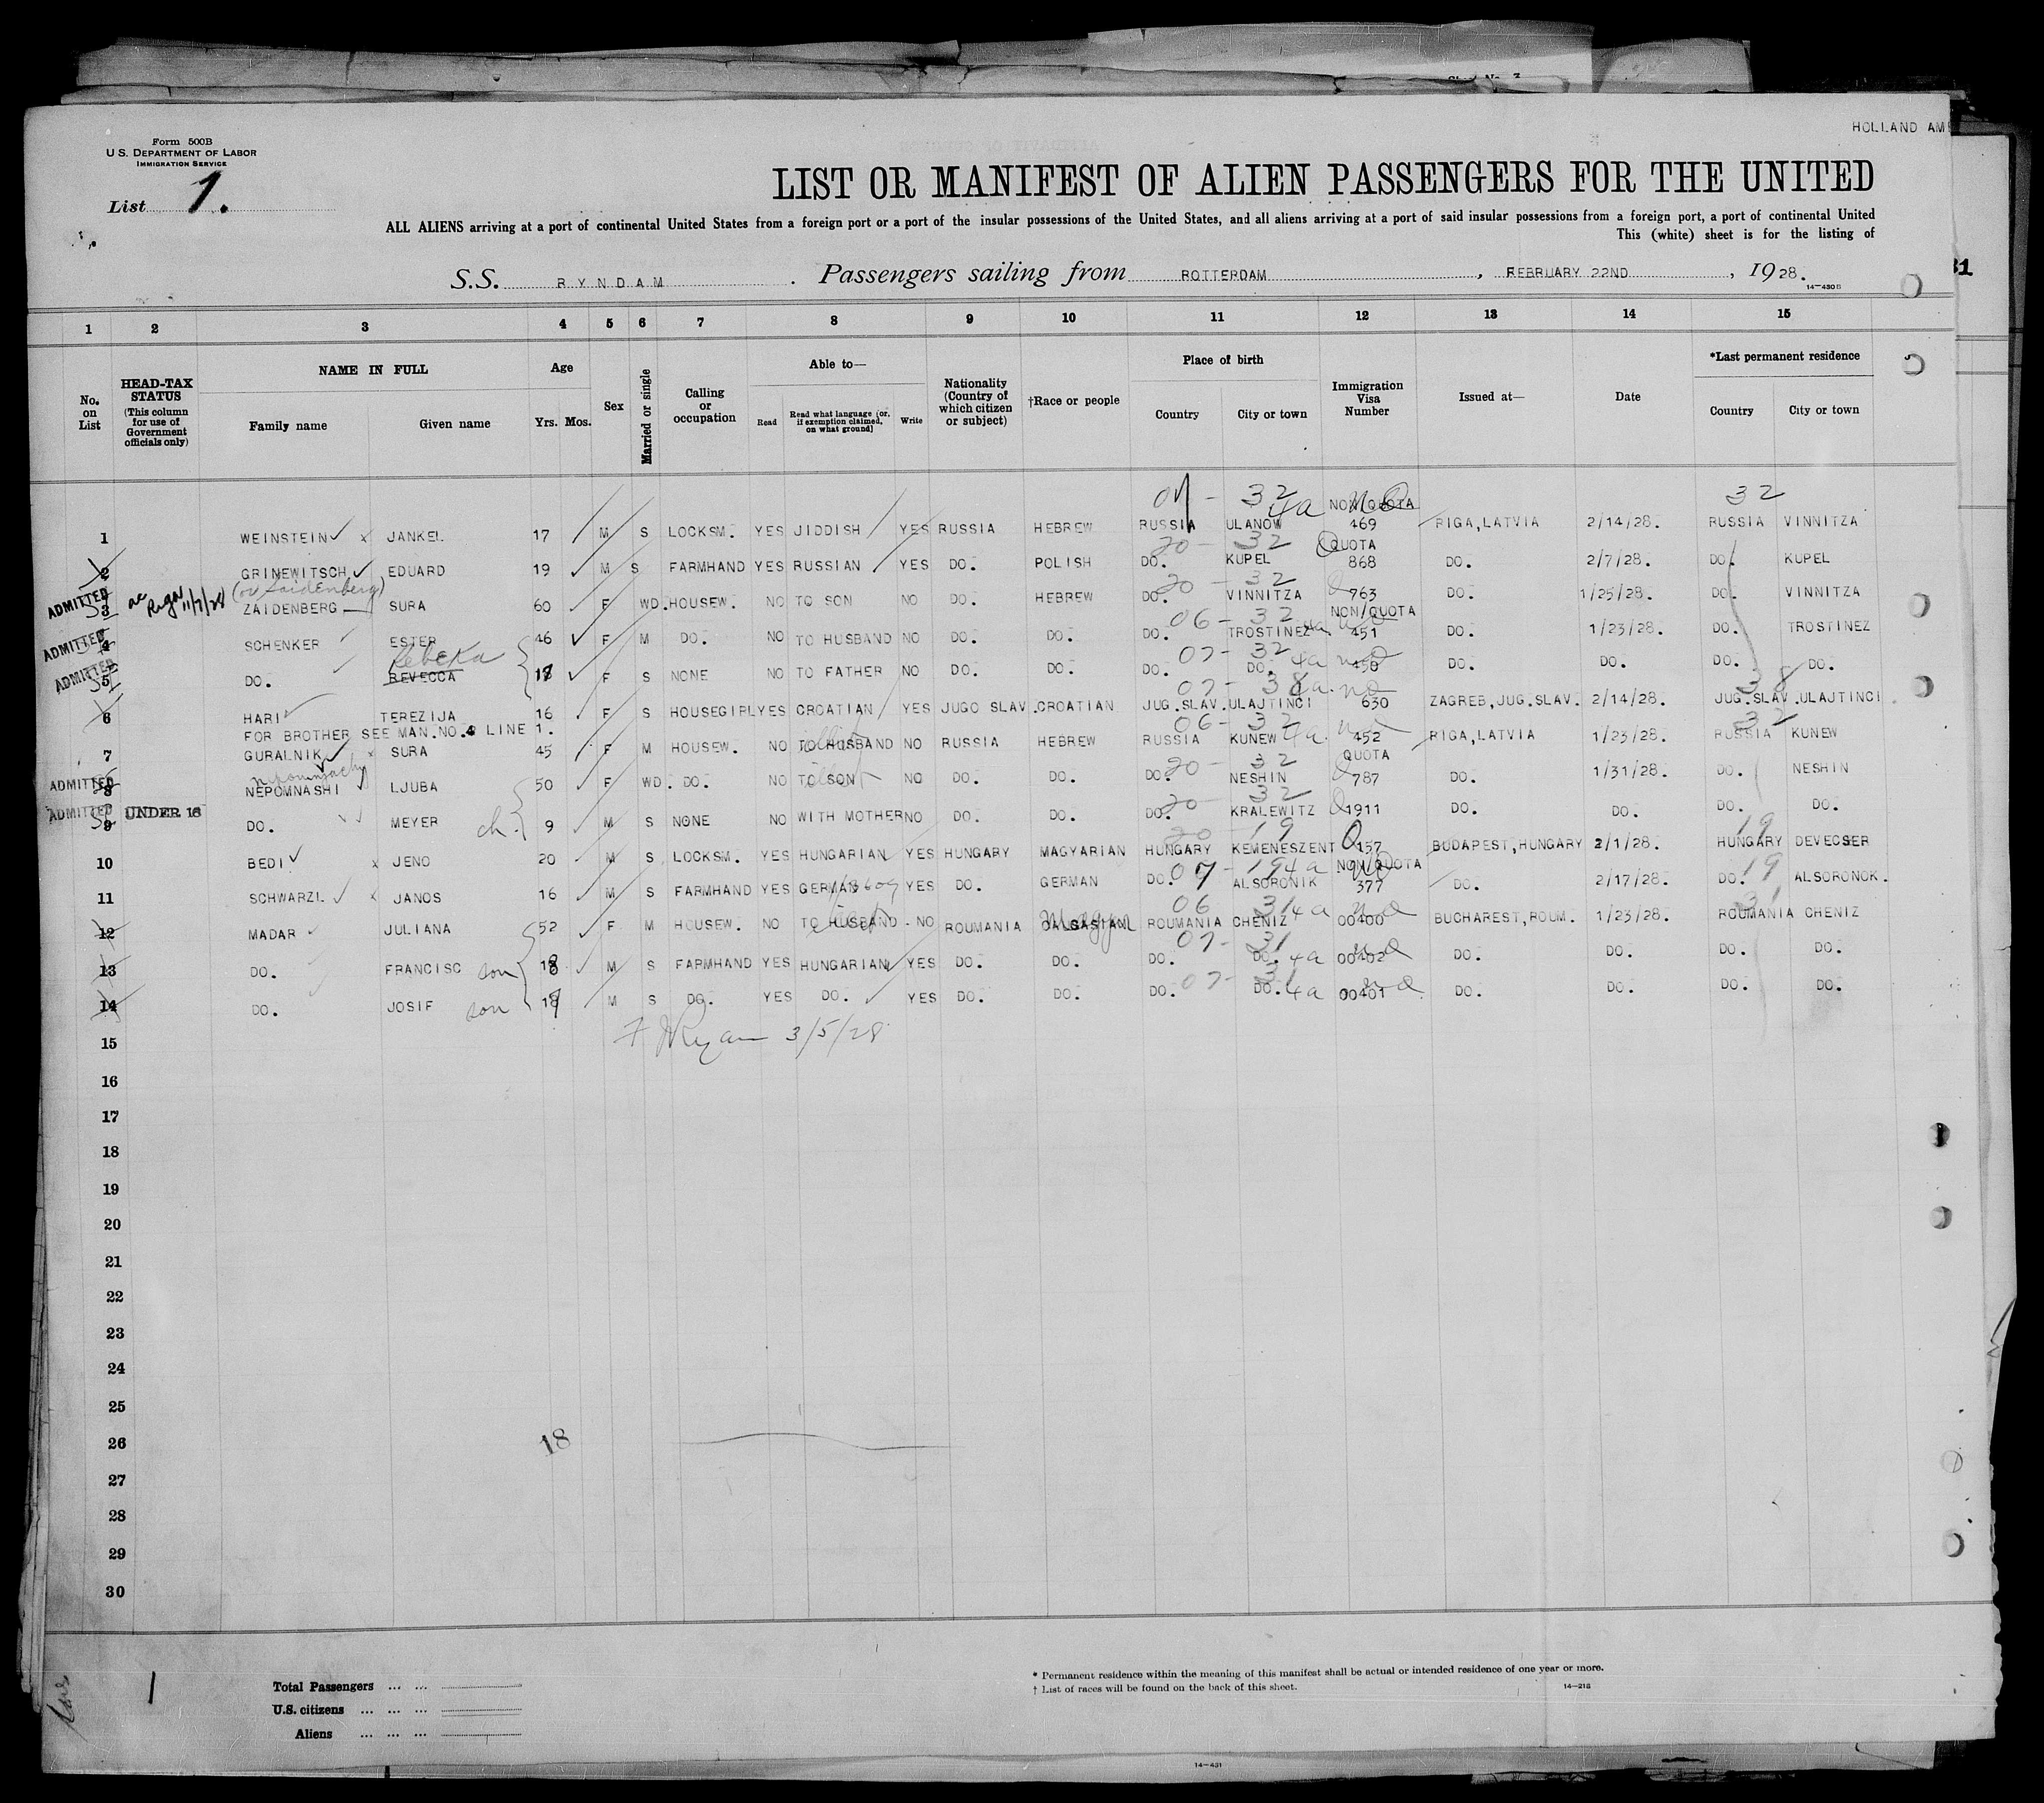 HOLLAND AM
Form 500B
U.S. DEPARTMENT OF LABOR
IMMIGRATION SERVICE
List 1.
LIST OR MANIFEST OF ALIEN PASSENGERS FOR THE UNITED
ALL ALIENS arriving at a port of continental United States from a foreign port or a port of the insular possessions of the United States, and all aliens arriving at a port of said insular possessions from a foreign port, a port of continental United
This (white) sheet is for the listing of
S.S. RYNDAM. Passengers sailing from ROTTERDAM, FEBRUARY 22ND, 1928.
14-430B
1 2 3 4 5 6 7 8 9 10 11 12 13 14 15
No. on List HEAD-TAX STATUS (This column for use of Government officials only) NAME IN FULL Family name Given name Age Yrs. Mos. Sex Married or single Calling or occupation Able to— Read Read what language (or, if exemption claimed, on what ground) Write Nationality (Country of which citizen or subject) †Race or people Place of birth Country City or town Immigration Visa Number Issued at— Date *Last permanent residence Country City or town
07 - 32 4a NON/QUOTA 32
1 WEINSTEIN JANKEL 17 M S LOCKSM. YES JIDDISH YES RUSSIA HEBREW RUSSIA ULANOW 469 RIGA, LATVIA 2/14/28. RUSSIA VINNITZA
20 - 32 QUOTA
2 GRINEWITSCH EDUARD 19 M S FARMHAND YES RUSSIAN YES DO. POLISH DO. KUPEL 868 DO. 2/7/28. DO. KUPEL
(or Saidenberg) 20 - 32
ADMITTED 3 ZAIDENBERG SURA 60 F WD. HOUSEW. NO TO SON NO DO. HEBREW DO. VINNITZA 763 DO. 1/25/28. DO. VINNITZA
06 - 32 NON/QUOTA
ADMITTED 4 SCHENKER ESTER 46 F M DO. NO TO HUSBAND NO DO. DO. DO. TROSTINEZ 451 DO. 1/23/28. DO. TROSTINEZ
Rebeka 07 - 32 4a
ADMITTED 5 DO. REVECCA 18 F S NONE NO TO FATHER NO DO. DO. DO. DO. 450 DO. DO. DO. DO.
07 - 38 38
6 HARI TEREZIJA 16 F S HOUSEGIRL YES CROATIAN YES JUGO SLAV. CROATIAN JUG.SLAV. ULAJTINCI 630 ZAGREB, JUG.SLAV. 2/14/28. JUG.SLAV. ULAJTINCI
FOR BROTHER SEE MAN.NO.4 LINE 1. 06 - 32 32
7 GURALNIK SURA 45 F M HOUSEW. NO TO HUSBAND NO RUSSIA HEBREW RUSSIA KUNEW 4a 452 RIGA, LATVIA 1/23/28. RUSSIA KUNEW
Nepomnjachy 20 - 32 QUOTA
ADMITTED 8 NEPOMNASHI LJUBA 50 F WD. DO. NO TO SON NO DO. DO. DO. NESHIN 787 DO. 1/31/28. DO. NESHIN
20 - 32
ADMITTED 9 UNDER 16 DO. MEYER ch. 9 M S NONE NO WITH MOTHER NO DO. DO. DO. KRALEWITZ 1911 DO. DO. DO. DO.
20 - 19 19
10 BEDI JENO 20 M S LOCKSM. YES HUNGARIAN YES HUNGARY MAGYARIAN HUNGARY KEMENESZENT 157 BUDAPEST, HUNGARY 2/1/28. HUNGARY DEVECSER
07 - 19 4a NON/QUOTA 19
11 SCHWARZL JANOS 16 M S FARMHAND YES GERMAN YES DO. GERMAN DO. ALSORONIK 377 DO. 2/17/28. DO. ALSORONOK.
06 31 4a 31
12 MADAR JULIANA 52 F M HOUSEW. NO TO HUSBAND NO ROUMANIA Magyar ROUMANIA CHENIZ 00400 BUCHAREST, ROUM. 1/23/28. ROUMANIA CHENIZ
07 - 31
13 DO. FRANCISC son 18 M S FARMHAND YES HUNGARIAN YES DO. DO. DO. DO. 4a 00402 DO. DO. DO. DO.
07 - 31
14 DO. JOSIF son 19 M S DO. YES DO. YES DO. DO. DO. DO. 4a 00401 DO. DO. DO. DO.
F J Ryan 3/5/28
15
16
17
18
19
20
21
22
23
24
25
26 18
27
28
29
30
1
Total Passengers
U.S. citizens
Aliens
* Permanent residence within the meaning of this manifest shall be actual or intended residence of one year or more.
† List of races will be found on the back of this sheet.
14-218
14-431